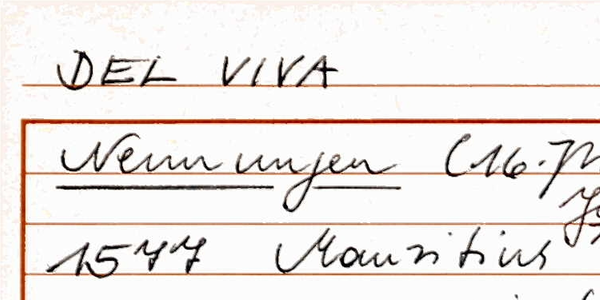 DEL VIVA
Nennungen (16.
1577 Mauritius